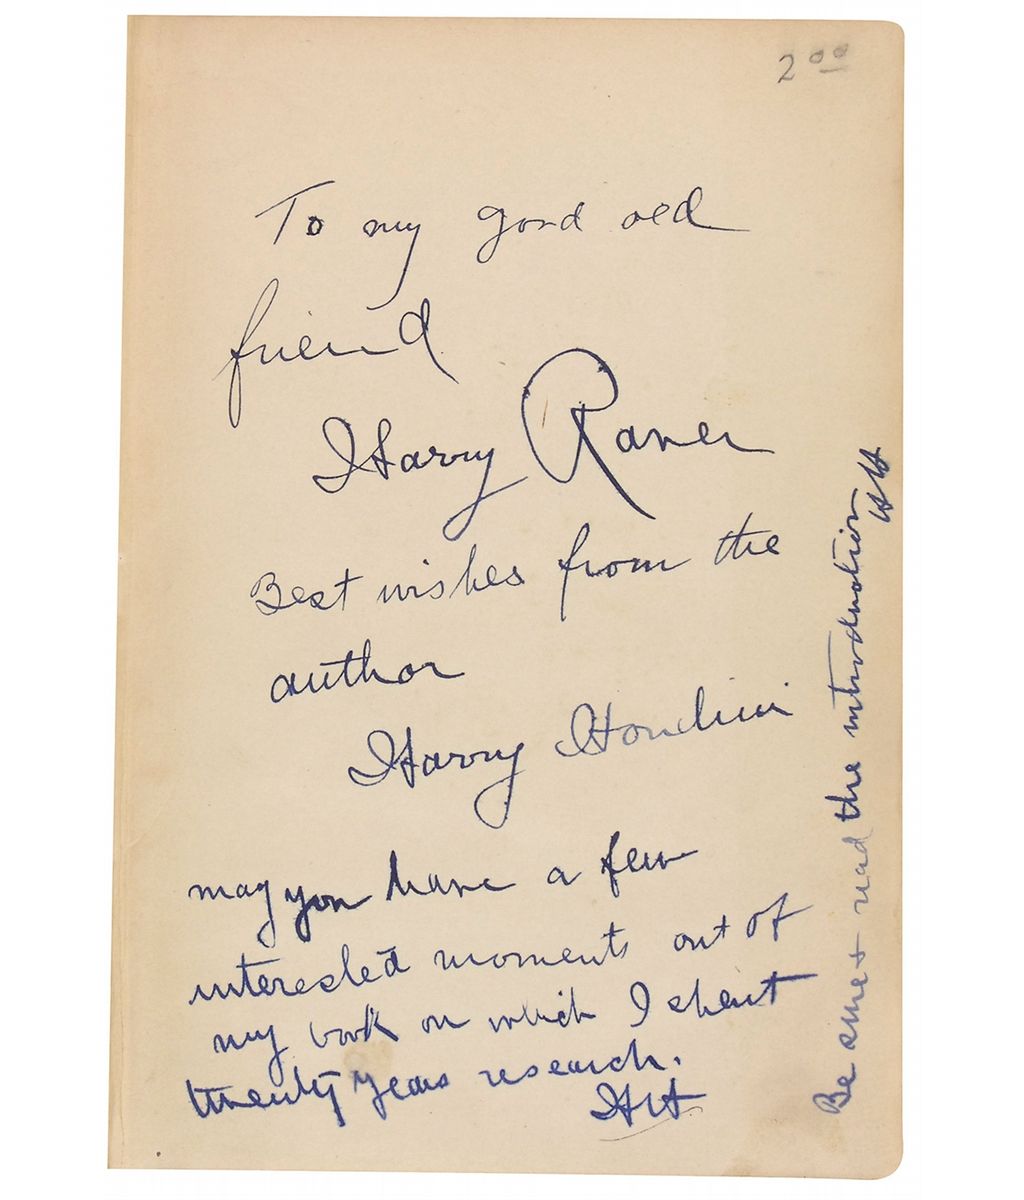 2 00
To my good old
friend
Harry Raver
Best wishes from the
author
Harry Houdini
may you have a few
interested moments out of
my book on which I spent
twenty years research.
HH
Be sure + read the introduction
HH